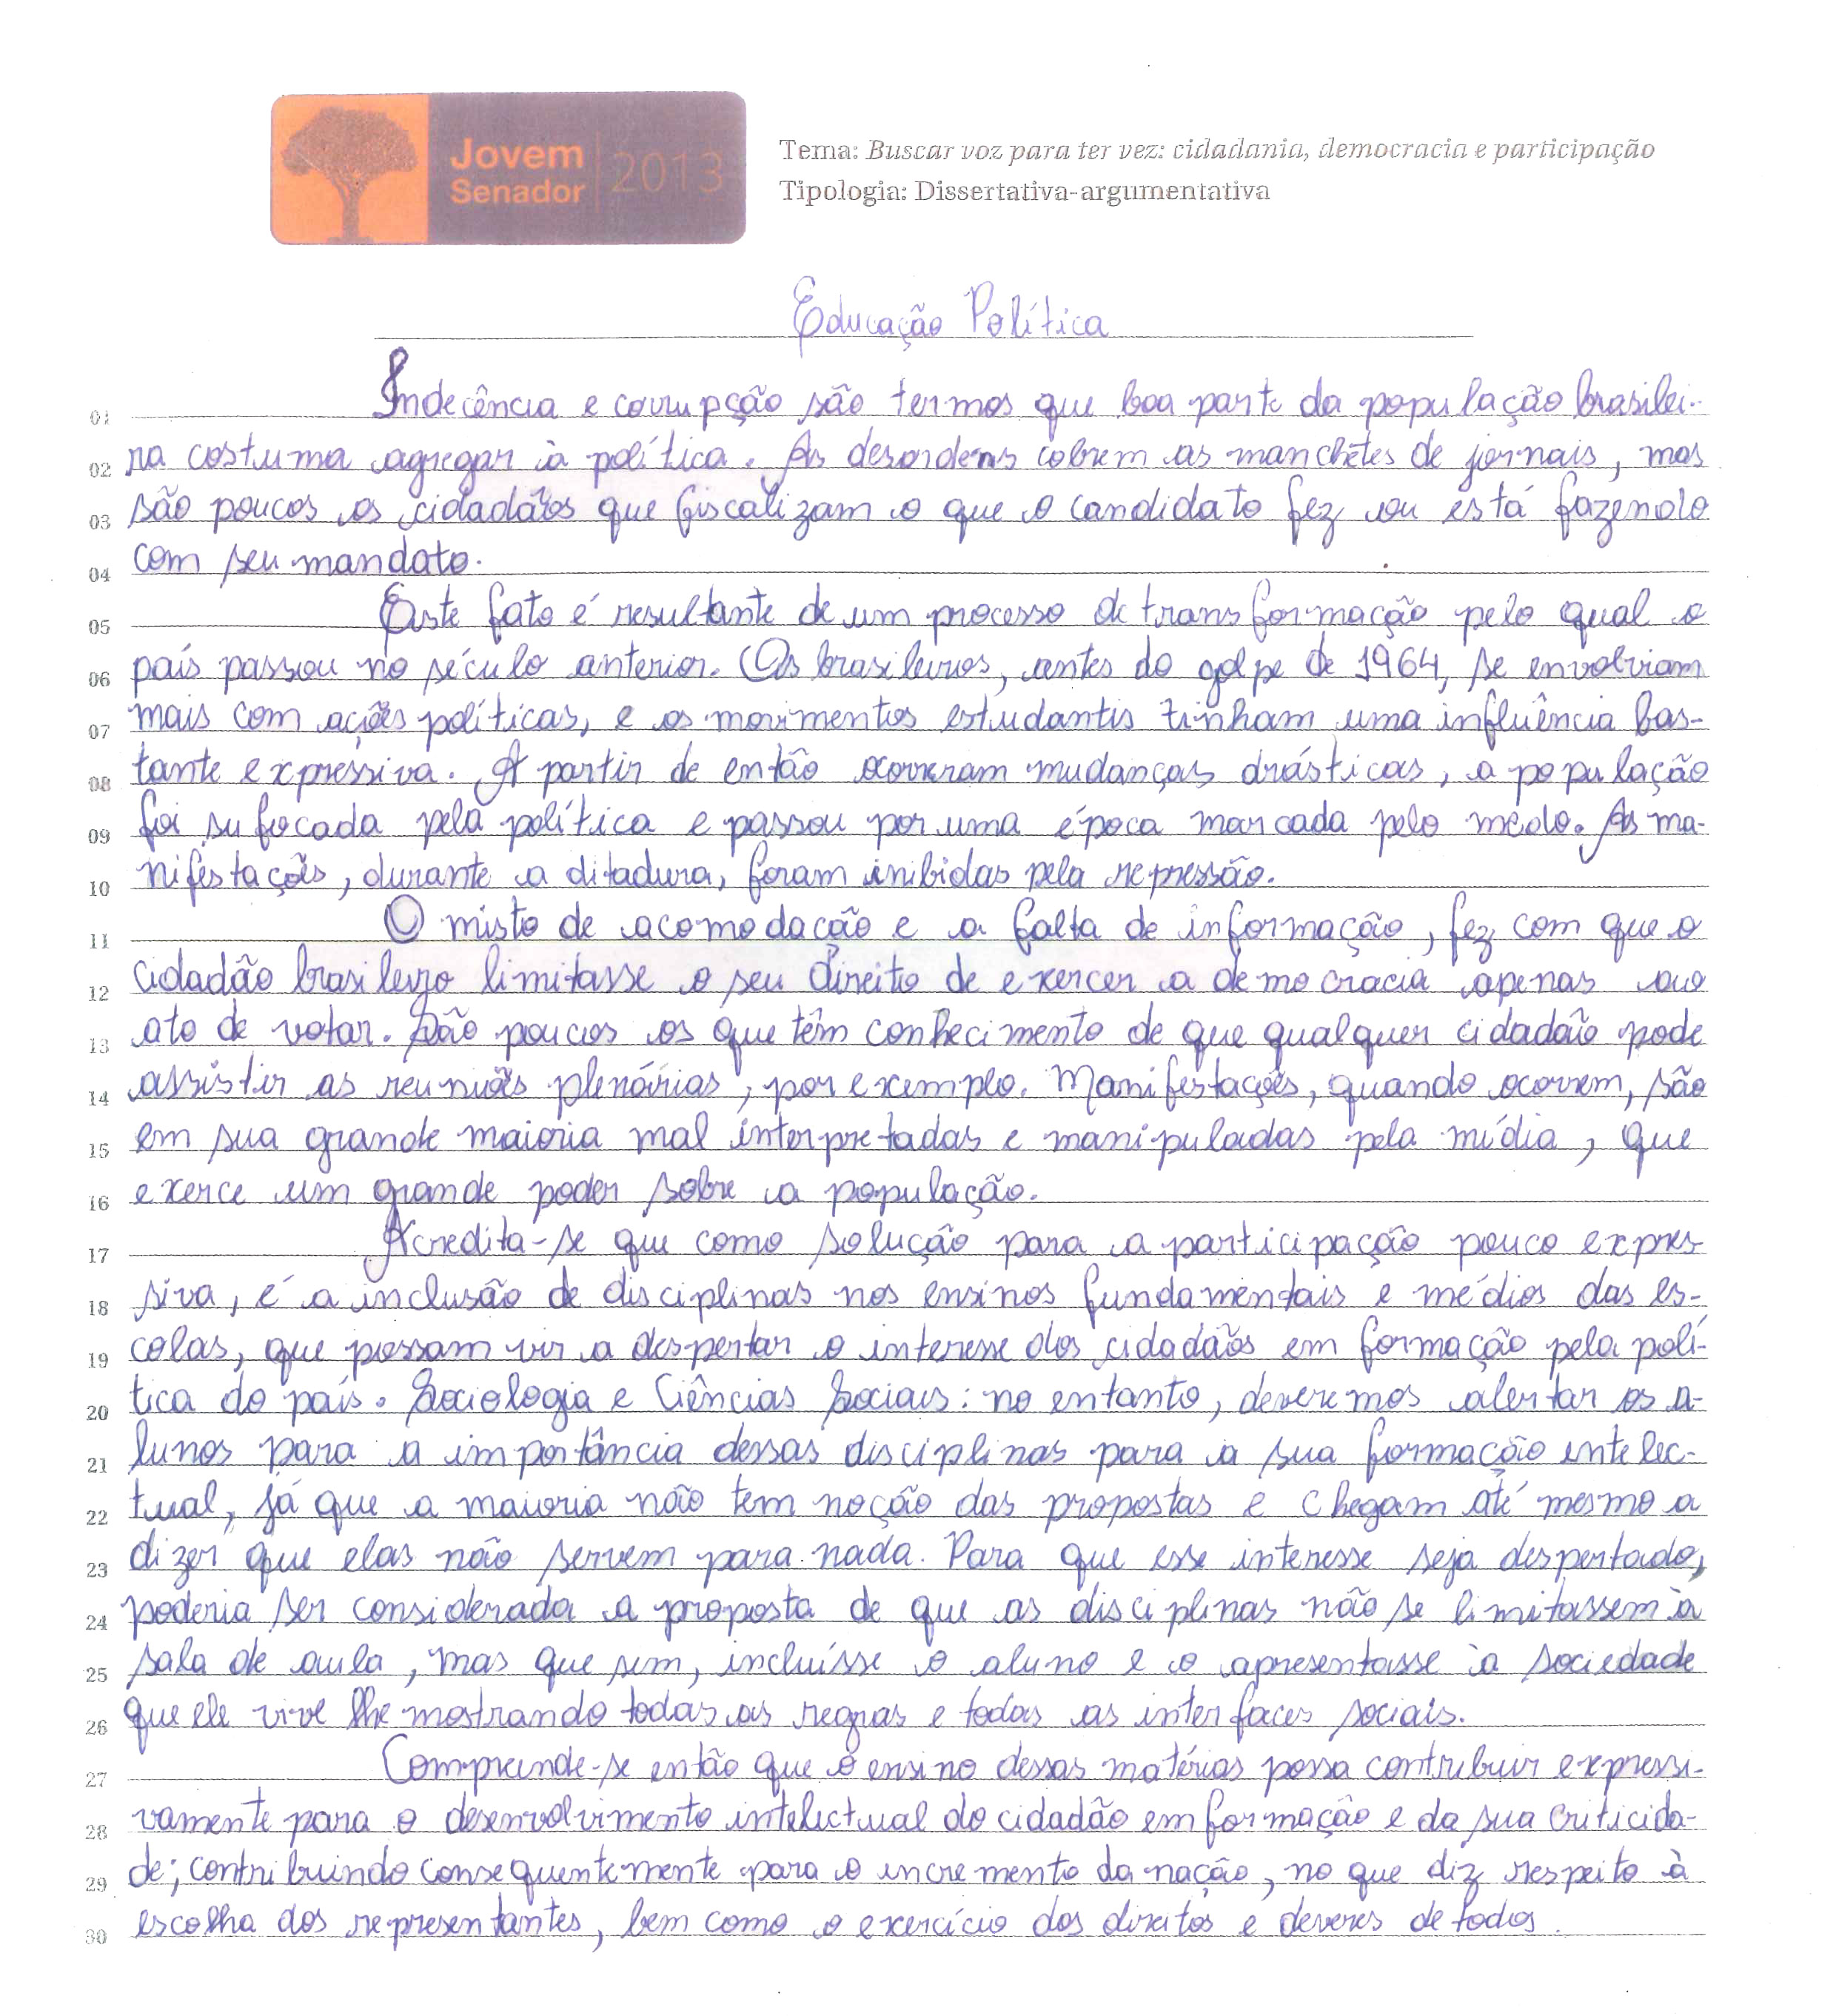 Jovem
Senador
2013
Tema: Buscar voz para ter vez: cidadania, democracia e participação
Tipologia: Dissertativa-argumentativa
Educação Política
01 Indecência e corrupção são termos que boa parte da população brasilei-
02 ra costuma agregar à política. As desordens cobrem as manchetes de jornais, mas
03 são poucos os cidadãos que fiscalizam o que o candidato fez ou está fazendo
04 com seu mandato.
05 Este fato é resultante de um processo de transformação pelo qual o
06 país passou no século anterior. Os brasileiros, antes do golpe de 1964, se envolviam
07 mais com ações políticas, e os movimentos estudantis tinham uma influência bas-
08 tante expressiva. A partir de então ocorreram mudanças drásticas, a população
09 foi sufocada pela política e passou por uma época marcada pelo medo. As ma-
10 nifestações, durante a ditadura, foram inibidas pela repressão.
11 O misto de acomodação e a falta de informação, fez com que o
12 cidadão brasileiro limitasse o seu direito de exercer a democracia apenas ao
13 ato de votar. São poucos os que têm conhecimento de que qualquer cidadão pode
14 assistir as reuniões plenárias, por exemplo. Manifestações, quando ocorrem, são
15 em sua grande maioria mal interpretadas e manipuladas pela mídia, que
16 exerce um grande poder sobre a população.
17 Acredita-se que como solução para a participação pouco expres-
18 siva, é a inclusão de disciplinas nos ensinos fundamentais e médios das es-
19 colas, que possam vir a despertar o interesse dos cidadãos em formação pela polí-
20 tica do país. Sociologia e Ciências Sociais: no entanto, deveremos alertar os a-
21 lunos para a importância dessas disciplinas para a sua formação intelec-
22 tual, já que a maioria não tem noção das propostas e chegam até mesmo a
23 dizer que elas não servem para nada. Para que esse interesse seja despertado,
24 poderia ser considerada a proposta de que as disciplinas não se limitassem à
25 sala de aula, mas que sim, incluísse o aluno e o apresentasse à sociedade
26 que ele vive lhe mostrando todas as regras e todas as interfaces sociais.
27 Compreende-se então que o ensino dessas matérias possa contribuir expressi-
28 vamente para o desenvolvimento intelectual do cidadão em formação e da sua criticida-
29 de; contribuindo consequentemente para o incremento da nação, no que diz respeito à
30 escolha dos representantes, bem como o exercício dos direitos e deveres de todos.